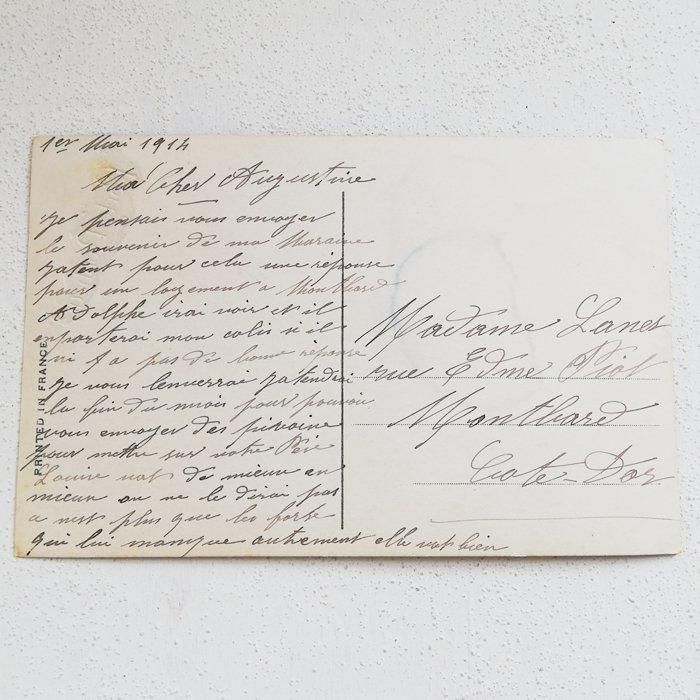 1er Mai 1914
Ma Cher Augustine
Je pensais vous envoyer
le souvenir de ma Maraine
jatent pour cela une réponse
pour un logement a Montbard
Adolphe irai voir et il
enporterai mon colis si il
ni y a pas de bonne réponse
je vous lenverrai jatendrai
la fin du mois pour pouvoir
vous envoyer des pivoine
pour mettre sur votre Père
Louise vat de mieux en
mieux on ne le dirai pas
a nest plus que les forse
qui lui manque autrement elle vat bien
Madame Lanes
rue Edme Piot
Montbard
Cote-D'or
PRINTED IN FRANCE